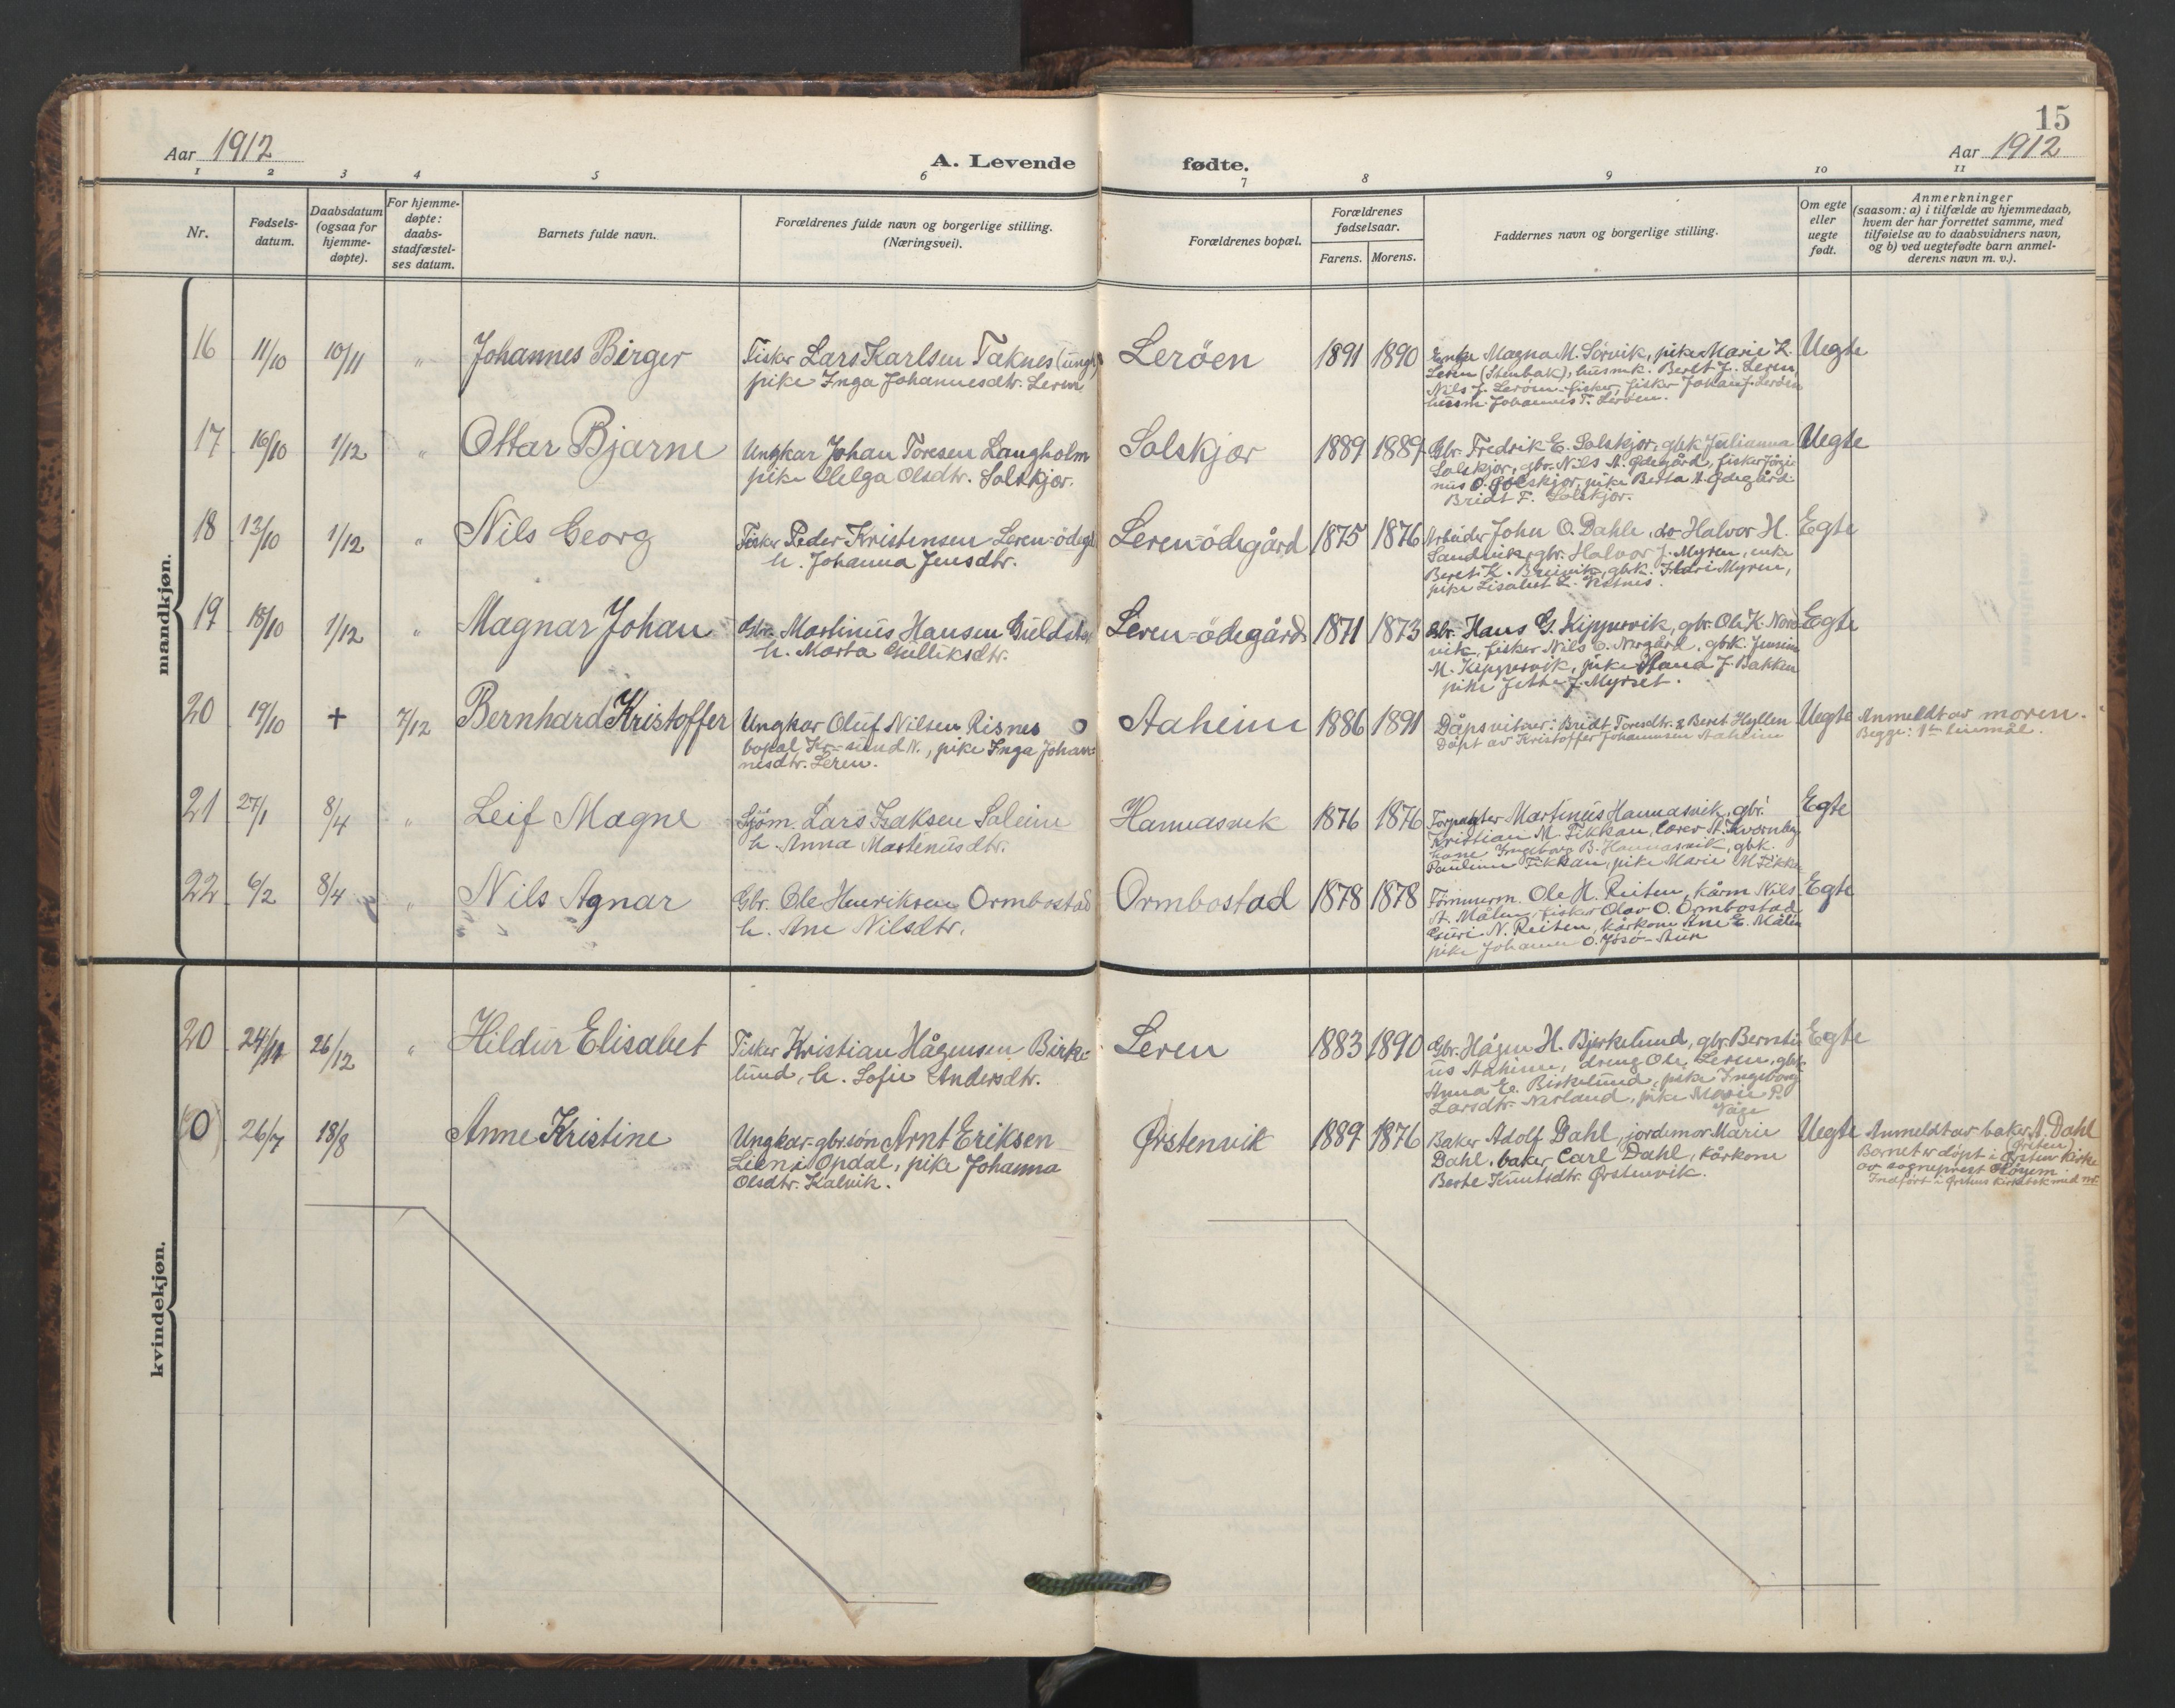 15
Aar 1912
A. Levende fødte.
Aar 1912
1 2 3 4 5 6 7 8 9 10 11
Nr.
Fødsels-
datum.
Daabsdatum
(ogsaa for
hjemme-
døpte).
For hjemme-
døpte:
daabs-
stadfæstel-
ses datum.
Barnets fulde navn.
Forældrenes fulde navn og borgerlige stilling.
(Næringsvei).
Forældrenes bopæl.
Forældrenes
fødselsaar.
Farens. Morens.
Faddernes navn og borgerlige stilling.
Om egte
eller
uegte
født.
Anmerkninger
(saasom: a) i tilfælde av hjemmedaab,
hvem der har forrettet samme, med
tilføielse av to daabsvidners navn,
og b) ved uegtefødte barn anmel-
derens navn m. v.).
mandkjøn.
16 11/10 10/11 " Johannes Birger
Fisker Lars Karlsen Taknes (ungk)
pike Inga Johannesdtr. Leren
Leröen 1891 1890
Enke Magna M. Sörvik, pike Marie L.
Leren (Stenbak), husmk. Beret J. Leren,
Nils J. Leröen fisker, fisker Johan J. Leröen
husm. Johannes T. Leröen.
Uegte
17 16/10 1/12 " Ottar Bjarne
Ungkar Johan Toresen Langholm
pike Helga Olsdtr. Solskjør.
Solskjør 1889 1889
Gbr. Fredrik E. Solskjør, gbk Julianna
Solskjør, gbr. Nils A. Ødegård, fisker Jörgi-
nus O. Solskjør, pike Berta N. Ødegård
Bridt F. Solskjør.
Uegte
18 13/10 1/12 " Nils Georg
Fisker Peder Kristensen Leren-ödegd
h. Johanna Jensdtr.
Leren-ödegård 1875 1876
Arbeider John O. Dahle, do Halvor H.
Sandvik, gbr. Halvor J. Myren, enke
Beret K. Breivik, gbk. Ildri Myren,
pike Lisabet L.
Egte
19 18/10 1/12 " Magnar Johan
Gbr. Martinus Hansen
h. Marta Gulliksdtr.
Leren-ödegård 1871 1873
Gbr. Hans G. Kippervik, gbr. Ole K. Nord-
vik, fisker Nils E. Nergård, gbk. Jensine
M. Kippervik, pike Hana J. Bakken
pike Jette J. Myrset.
Egte
20 19/10 + 7/12 Bernhard Kristoffer
Ungkar Oluf Nilsen Risnes o
bopæl Kr-sund N., pike Inga Johan-
nesdtr. Leren.
Aaheim 1886 1891
Dåpsvitner: Bridt Toresdtr. & Beret Hyllen
Döpt av Kristoffer Johannesen Aaheim
Uegte
Anmeldt av moren.
Begge: 1ste leiermål.
21 27/1 8/4 " Leif Magne
Sjöm. Lars Isaksen Soleim
h. Anna Martinusdtr.
Hannasvik 1876 1876
Forpagter Martinus Hannasvik, gbr.
Kristian M. Fikkan, lærer A. Kvernberg
kone Ingeborg B. Hannasvik, gbk.
Pauline Fikkan, pike Marie M. Fikka
Egte
22 6/2 8/4 " Nils Agnar
Gbr. Ole Henriksen Ormbostad
h. Ane Nilsdtr.
Ormbostad 1878 1878
Tömmerm. Ole H. Reiten, kårm Nils
A. Målen, fisker Olav O. Ormbostad,
Guri N. Reiten, kårkone Ane E. Målen
pike Johanne O. Jösö-Aure
Egte
kvindekjøn.
20 24/11 26/12 " Hildur Elisabet
Fisker Kristian Hågensen Birke-
lund, h. Sofie Andersdtr.
Leren 1883 1890
Gbr. Hågen H. Bjerkelund, gbr. Berntin-
us Aaheim, dreng Ole Leren, gbk
Anna E. Birkelund, pike Ingeborg
Larsdtr. Nerland, pike Marie P.
Våge
Egte
(0) 26/7 18/8 Anne Kristine
Ungkar-gbr.sön Arnt Eriksen
Lien i Opdal, pike Johanna
Olsdtr. Kalvik.
Ørstenvik 1889 1876
Baker Adolf Dahl, jordemor Marie
Dahl, baker Carl Dahl, kårkone
Berte Knutsdtr. Ørstenvik.
Uegte
Anmeldt av baker A. Dahl
(Örsten)
Barnet er döpt i Örsten kirke
av sogneprest Höyem.
Indfört i Örstens kirkebok med nr.